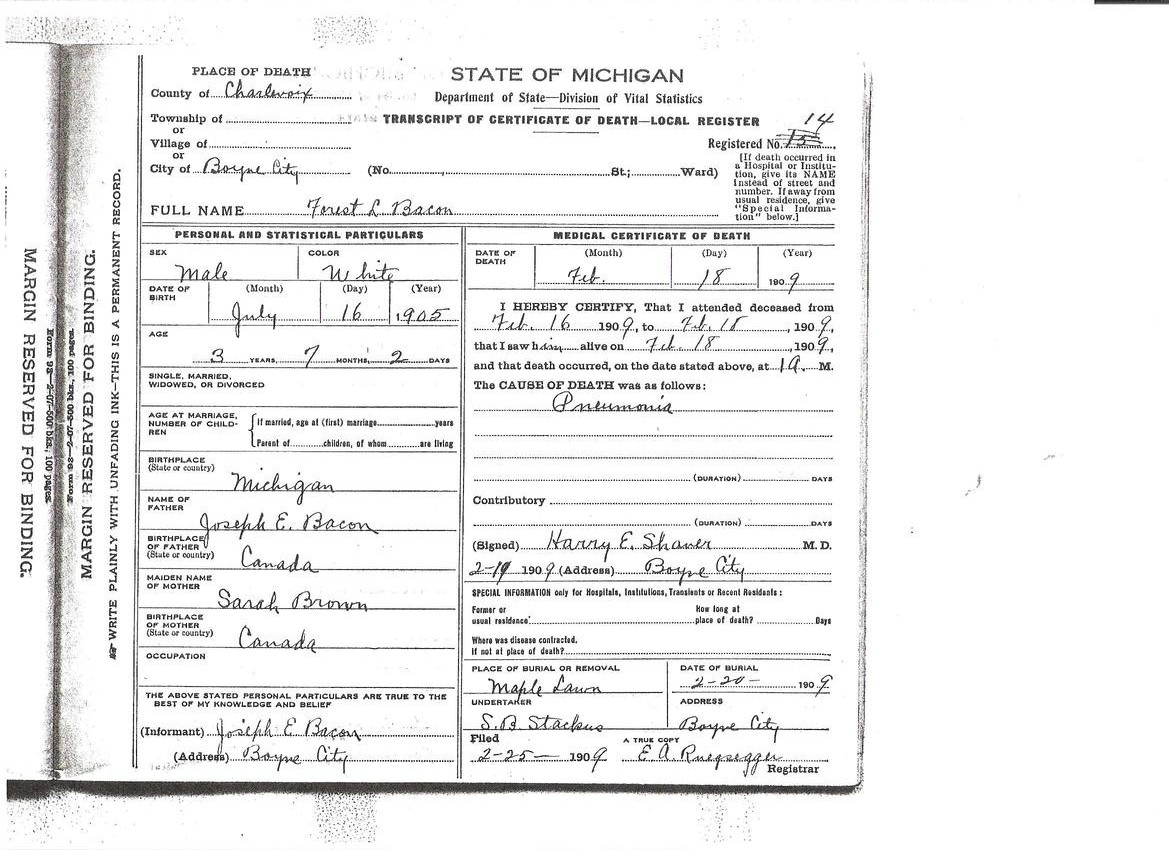 PLACE OF DEATH
County of Charlevoix
Township of
or
Village of
or
City of Boyne City
STATE OF MICHIGAN
Department of State—Division of Vital Statistics
TRANSCRIPT OF CERTIFICATE OF DEATH—LOCAL REGISTER
14
Registered No. 15
(No. St.; Ward)
[If death occurred in
a Hospital or Institu-
tion, give its NAME
instead of street and
number. If away from
usual residence, give
"Special Informa-
tion" below.]
FULL NAME Forest L Bacon
PERSONAL AND STATISTICAL PARTICULARS
SEX Male COLOR White
DATE OF BIRTH (Month) (Day) (Year)
July 16 1905
AGE
3 YEARS, 7 MONTHS, 2 DAYS
SINGLE, MARRIED,
WIDOWED, OR DIVORCED
AGE AT MARRIAGE,
NUMBER OF CHILD-
REN
If married, age at (first) marriage years
Parent of children, of whom are living
BIRTHPLACE
(State or country)
Michigan
NAME OF
FATHER
Joseph E. Bacon
BIRTHPLACE
OF FATHER
(State or country)
Canada
MAIDEN NAME
OF MOTHER
Sarah Brown
BIRTHPLACE
OF MOTHER
(State or country)
Canada
OCCUPATION
THE ABOVE STATED PERSONAL PARTICULARS ARE TRUE TO THE
BEST OF MY KNOWLEDGE AND BELIEF
(Informant) Joseph E Bacon
(Address) Boyne City
MEDICAL CERTIFICATE OF DEATH
DATE OF DEATH (Month) (Day) (Year)
Feb. 18 1909
I HEREBY CERTIFY, That I attended deceased from
Feb. 16 1909, to Feb. 18, 1909,
that I saw him alive on Feb. 18, 1909,
and that death occurred, on the date stated above, at 1 A. M.
The CAUSE OF DEATH was as follows:
Pneumonia
(DURATION) DAYS
Contributory
(DURATION) DAYS
(Signed) Harry E. Shaver M. D.
2-19 1909 (Address) Boyne City
SPECIAL INFORMATION only for Hospitals, Institutions, Transients or Recent Residents:
Former or
usual residence
How long at
place of death? Days
Where was disease contracted,
If not at place of death?
PLACE OF BURIAL OR REMOVAL
Maple Lawn
DATE OF BURIAL
2-20- 1909
UNDERTAKER
S. B. Stackus
ADDRESS
Boyne City
Filed
2-25- 1909
A TRUE COPY
E. A. Ruegsegger
Registrar
WRITE PLAINLY WITH UNFADING INK—THIS IS A PERMANENT RECORD.
MARGIN RESERVED FOR BINDING.
Form 98—2-07-500 bks, 100 pages.
Form 98—2-07-500 bks, 100 pages.
MARGIN RESERVED FOR BINDING.